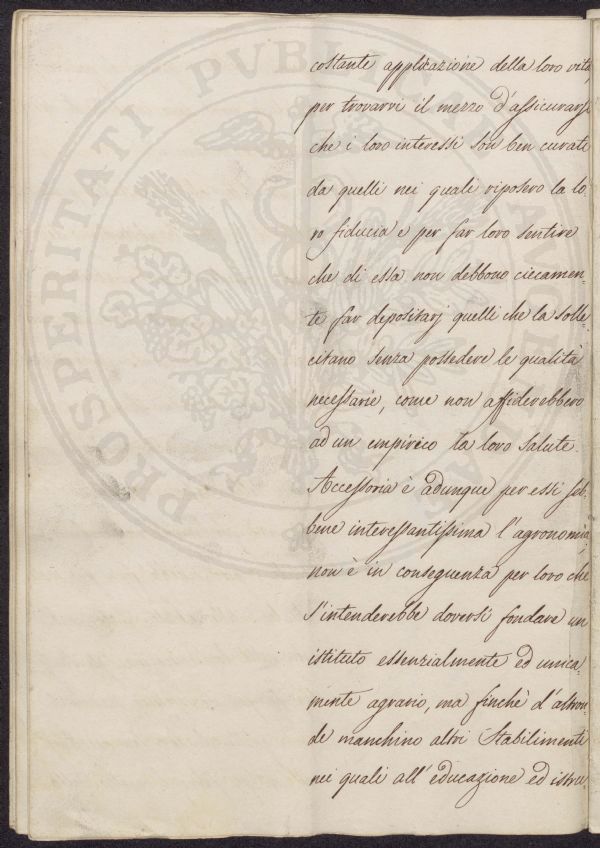 costante applicazione della loro vita
per trovarvi il mezzo d'assicurarsi
che i loro interessi son ben curati
da quelli nei quali riposero la lo
ro fiducia e per far loro sentire
che di essa non debbono ciecamen-
te far depositarj quelli che la solle-
citano senza possedere le qualità
necessarie, come non affiderebbero
ad un empirico la loro salute.
Accessoria è adunque per essi seb-
bene interessantissima l'agronomia,
non è in conseguenza per loro che
s'intenderebbe doversi fondare un
istituto essenzialmente ed unica-
mente agrario, ma finchè d'altron-
de manchino altri Stabilimenti
nei quali all'educazione ed istru-
PROSPERITATI PVBLICAE